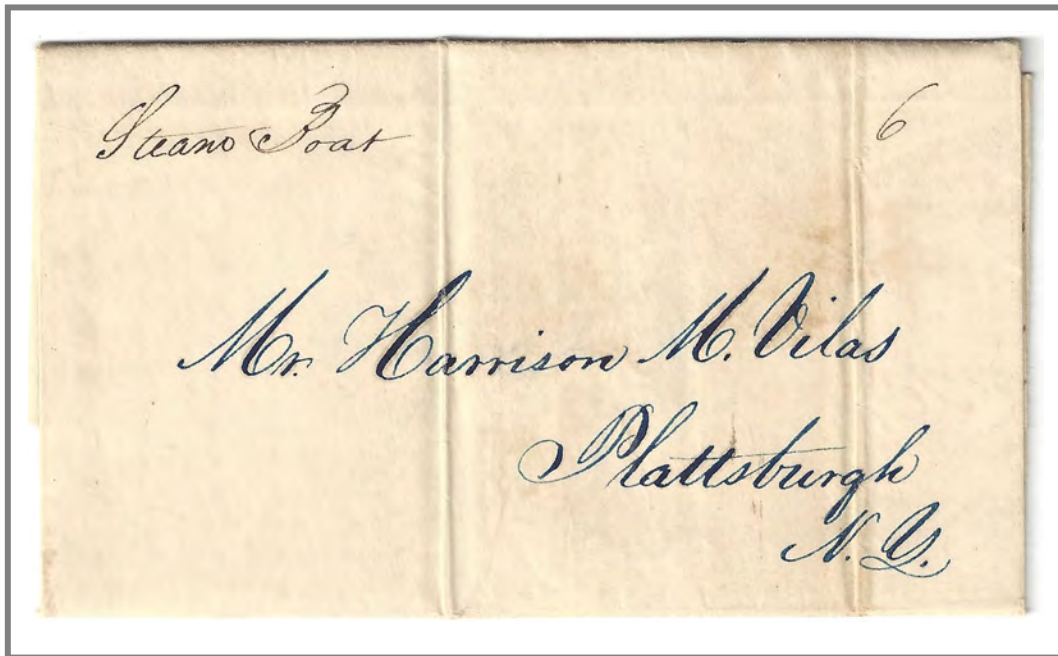 Steam Boat 6
Mr. Harrison M. Vilas
Plattsburgh
N.Y.